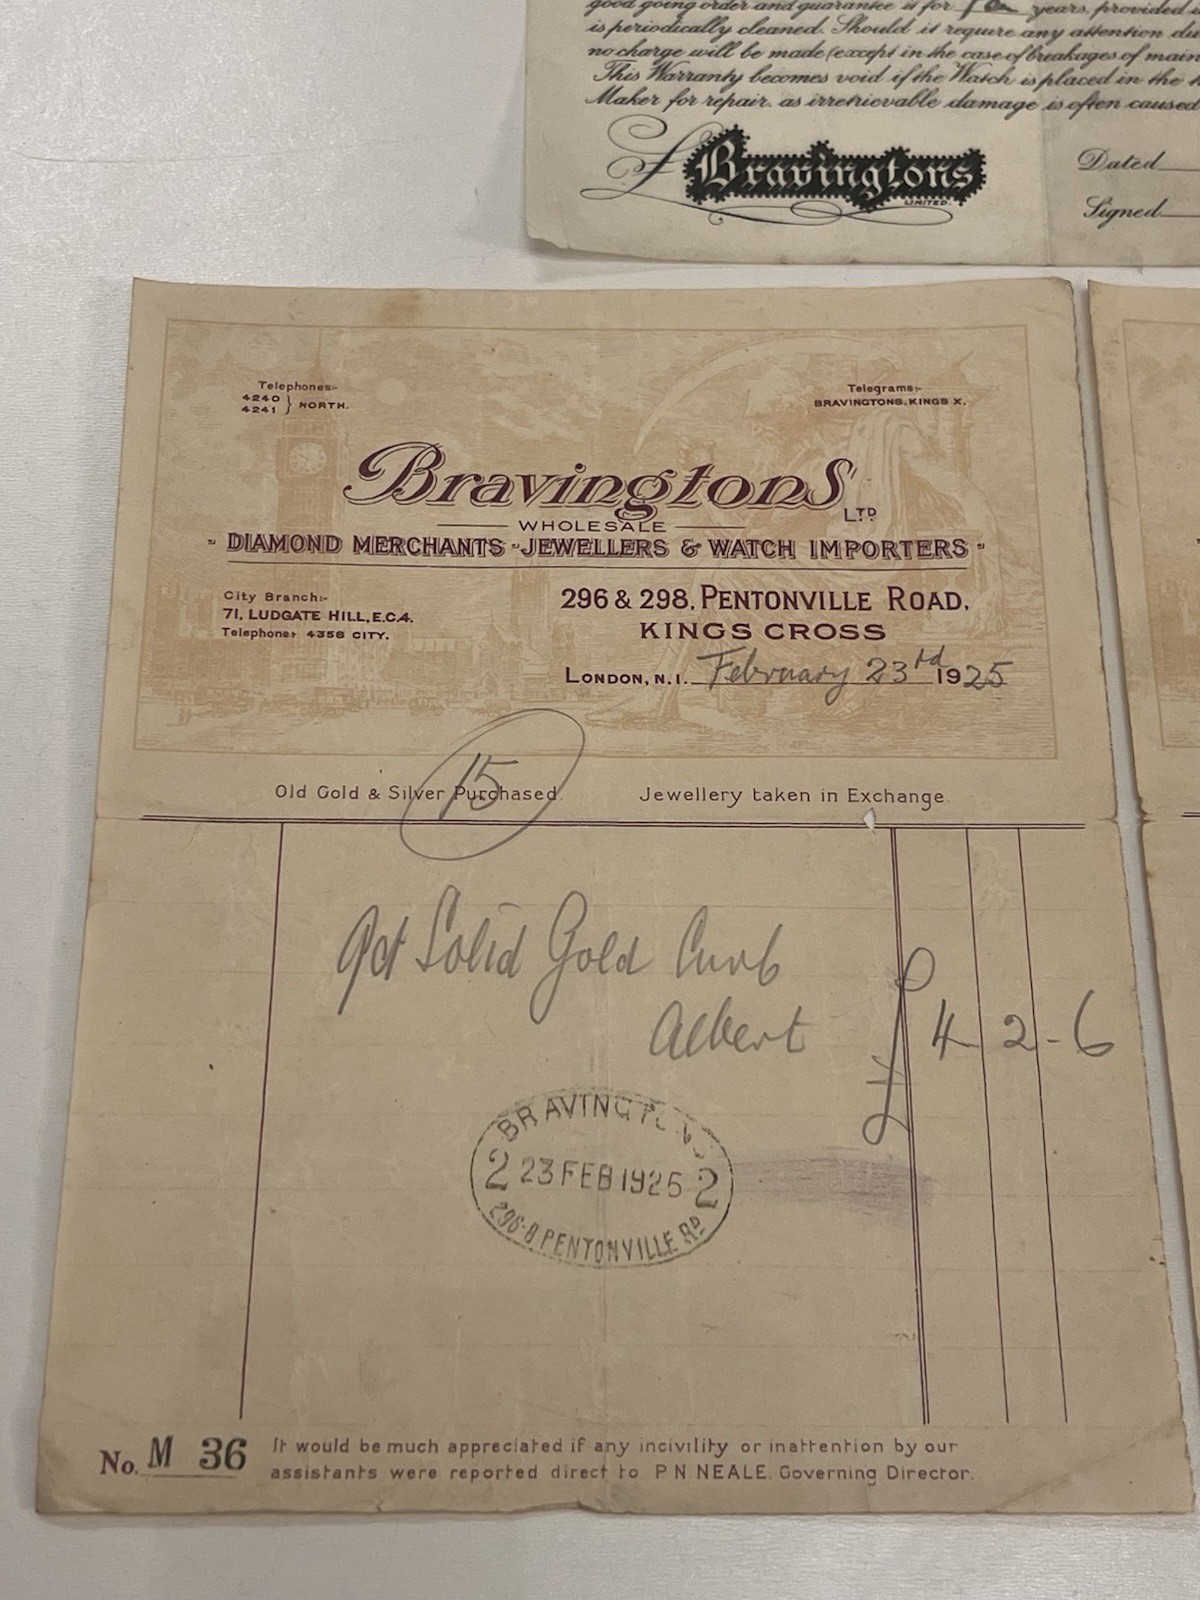 good going order and guarantee it for years, provided
is periodically cleaned. Should it require any attention
no charge will be made (except in the case of breakages of main
This Warranty becomes void if the Watch is placed in the
Maker for repair, as irretrievable damage is often caused
Bravingtons
LIMITED.
Dated
Signed
Telephones:-
4240
4241 } NORTH.
Telegrams:-
BRAVINGTONS, KINGS X.
Bravingtons LTD
WHOLESALE
DIAMOND MERCHANTS - JEWELLERS & WATCH IMPORTERS
City Branch:-
71, LUDGATE HILL, E.C.4.
Telephone: 4358 CITY.
296 & 298, PENTONVILLE ROAD,
KINGS CROSS
LONDON, N.1. February 23rd 1925
15
Old Gold & Silver Purchased. Jewellery taken in Exchange.
9ct Solid Gold Curb
Albert £ 4 2 - 6
BRAVINGTONS
2 23 FEB 1925 2
296-8 PENTONVILLE RD
No. M 36
It would be much appreciated if any incivility or inattention by our
assistants were reported direct to P.N. NEALE, Governing Director.